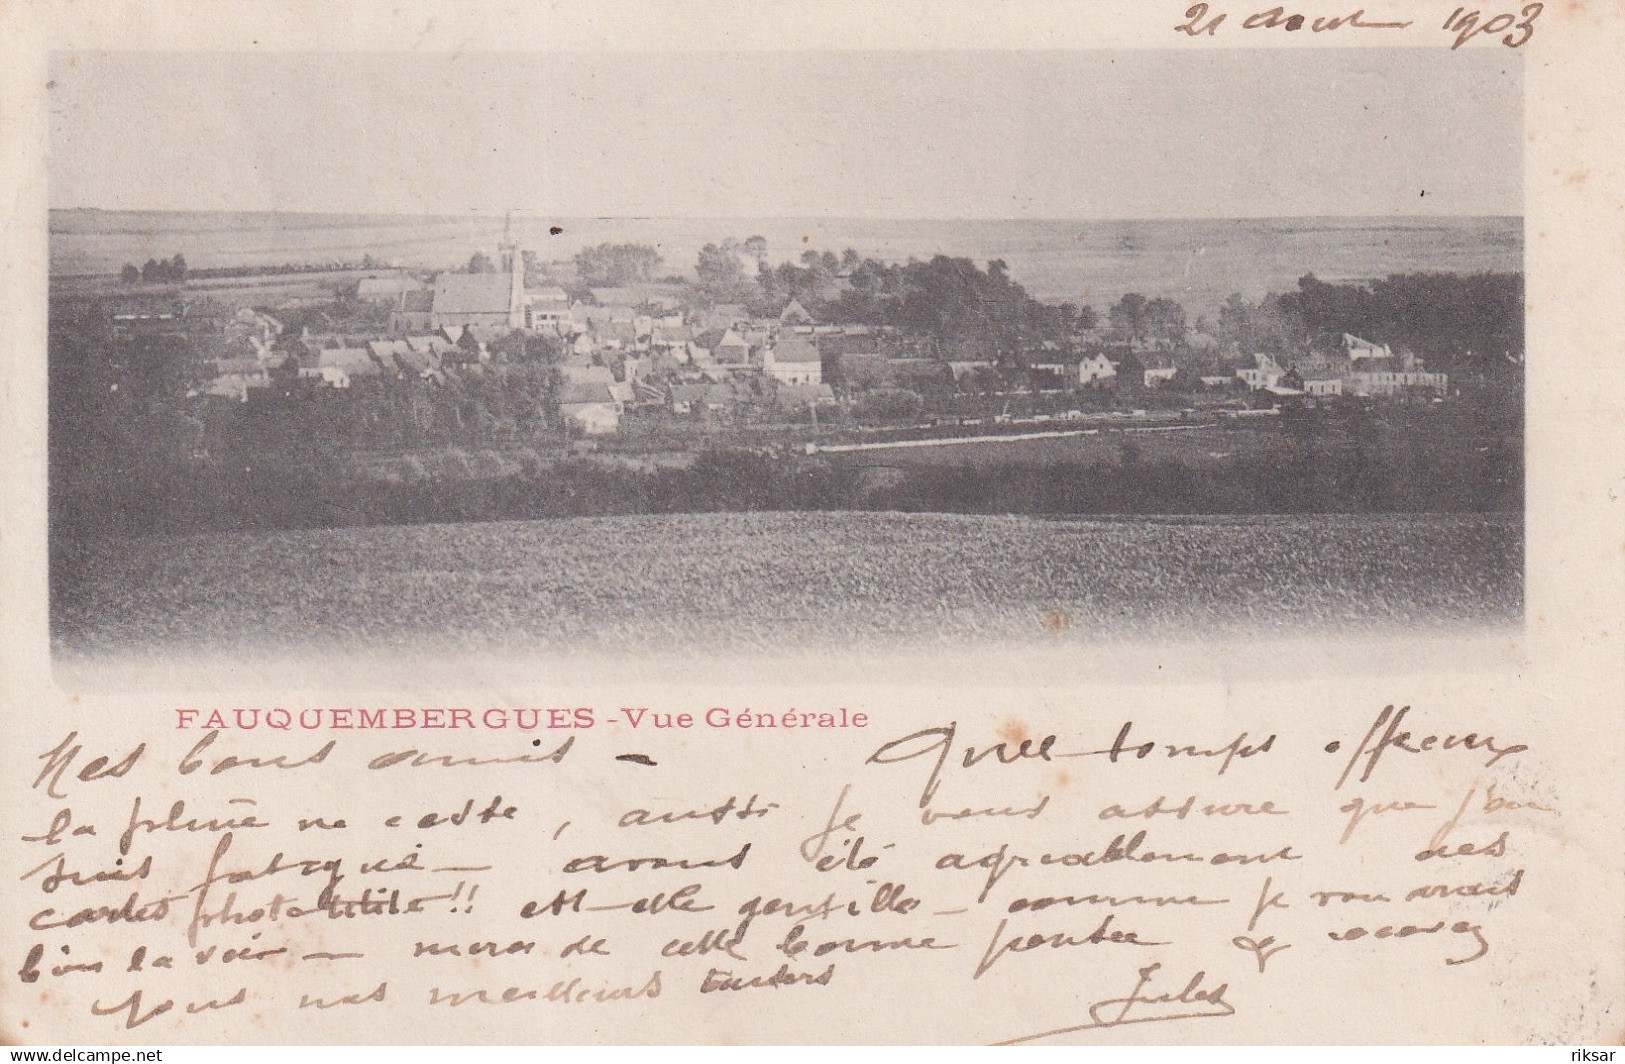 21 Aout 1903
FAUQUEMBERGUES - Vue Générale
Mes bons amis - Quel temps affreux
la pluie ne cesse, aussi je vous assure que j'en
suis fatigué - avons été agréablement des
cartes photo !! est-elle gentille - comme je vou
bien la voir - merci de cette bonne pensée & recevez
tous nos meilleurs baisers
Jules
riksar
www.delcampe.net